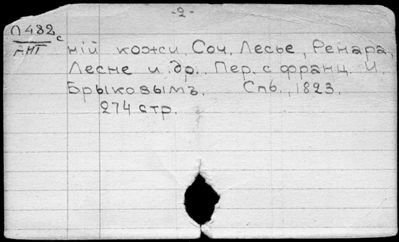 -2-
П482с
АНГ
ній кожи. Соч. Лесье, Ренара,
Лесне и др. Пер. с франц. И.
Брыковымъ. Спб., 1823.
274 стр.